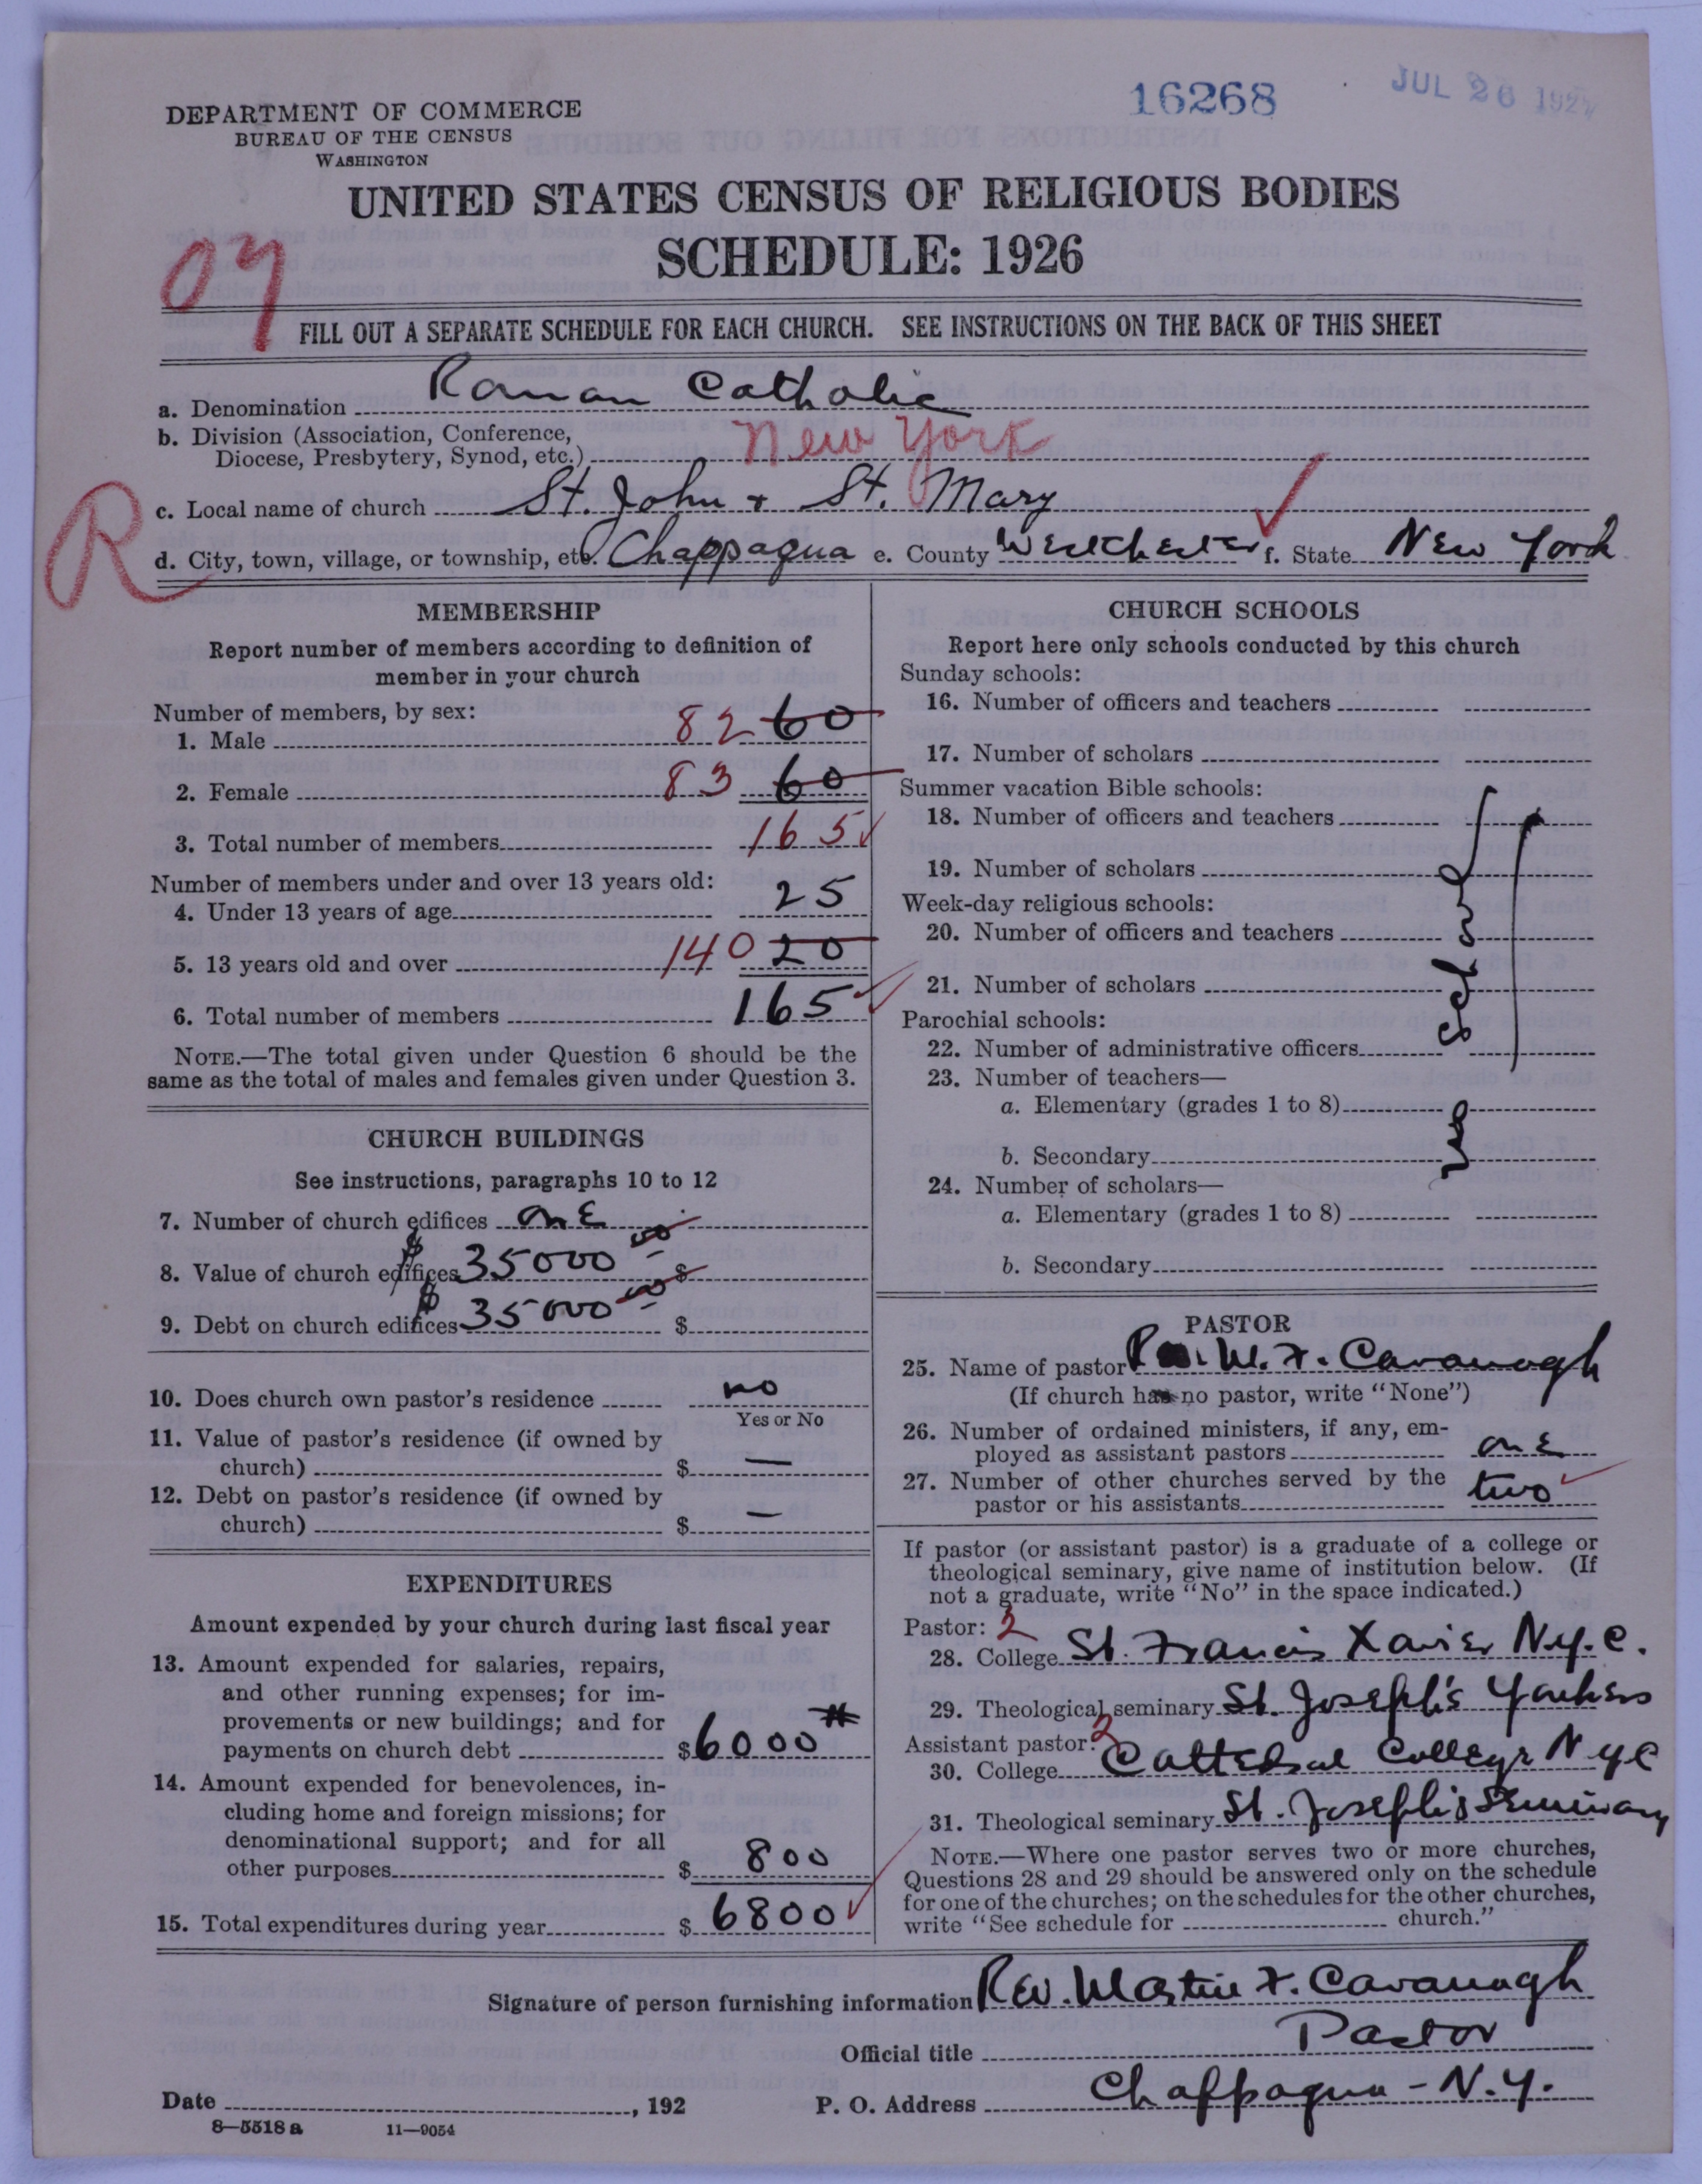 16268
JUL 26 192
DEPARTMENT OF COMMERCE
BUREAU OF THE CENSUS
WASHINGTON
UNITED STATES CENSUS OF RELIGIOUS BODIES
SCHEDULE: 1926
FILL OUT A SEPARATE SCHEDULE FOR EACH CHURCH. SEE INSTRUCTIONS ON THE BACK OF THIS SHEET
a. Denomination Roman Catholic
b. Division (Association, Conference,
Diocese, Presbytery, Synod, etc.) New York
R
c. Local name of church St. John + St. Mary
d. City, town, village, or township, etc. Chappaqua e. County Westchester f. State New York
MEMBERSHIP
Report number of members according to definition of
member in your church
Number of members, by sex:
1. Male 82 60
2. Female 83 60
3. Total number of members 165
Number of members under and over 13 years old:
4. Under 13 years of age 25
5. 13 years old and over 140 20
6. Total number of members 165
NOTE.—The total given under Question 6 should be the
same as the total of males and females given under Question 3.
CHURCH BUILDINGS
See instructions, paragraphs 10 to 12
7. Number of church edifices one
8. Value of church edifices $35000 00 $
9. Debt on church edifices $35000 00 $
10. Does church own pastor's residence no
Yes or No
11. Value of pastor's residence (if owned by
church) $ —
12. Debt on pastor's residence (if owned by
church) $ —
EXPENDITURES
Amount expended by your church during last fiscal year
13. Amount expended for salaries, repairs,
and other running expenses; for im-
provements or new buildings; and for
payments on church debt $6000
14. Amount expended for benevolences, in-
cluding home and foreign missions; for
denominational support; and for all
other purposes $ 800
15. Total expenditures during year $ 6800
CHURCH SCHOOLS
Report here only schools conducted by this church
Sunday schools:
16. Number of officers and teachers
17. Number of scholars
Summer vacation Bible schools:
18. Number of officers and teachers
19. Number of scholars
Week-day religious schools:
20. Number of officers and teachers
21. Number of scholars
Parochial schools:
22. Number of administrative officers
23. Number of teachers—
a. Elementary (grades 1 to 8)
b. Secondary
24. Number of scholars—
a. Elementary (grades 1 to 8)
b. Secondary
no school
PASTOR
25. Name of pastor M. F. Cavanagh
(If church has no pastor, write "None")
26. Number of ordained ministers, if any, em-
ployed as assistant pastors one
27. Number of other churches served by the
pastor or his assistants two
If pastor (or assistant pastor) is a graduate of a college or
theological seminary, give name of institution below. (If
not a graduate, write "No" in the space indicated.)
Pastor: 2
28. College St. Francis Xavier N.Y.C.
29. Theological seminary St. Joseph's Yonkers
Assistant pastor: 2
30. College Cathedral College N Y C
31. Theological seminary St. Joseph's Seminary
NOTE.—Where one pastor serves two or more churches,
Questions 28 and 29 should be answered only on the schedule
for one of the churches; on the schedules for the other churches,
write "See schedule for church."
Signature of person furnishing information Rev. Martin F. Cavanagh
Official title Pastor
Date , 192 P. O. Address Chappaqua - N.Y.
8—5518 a 11—9054